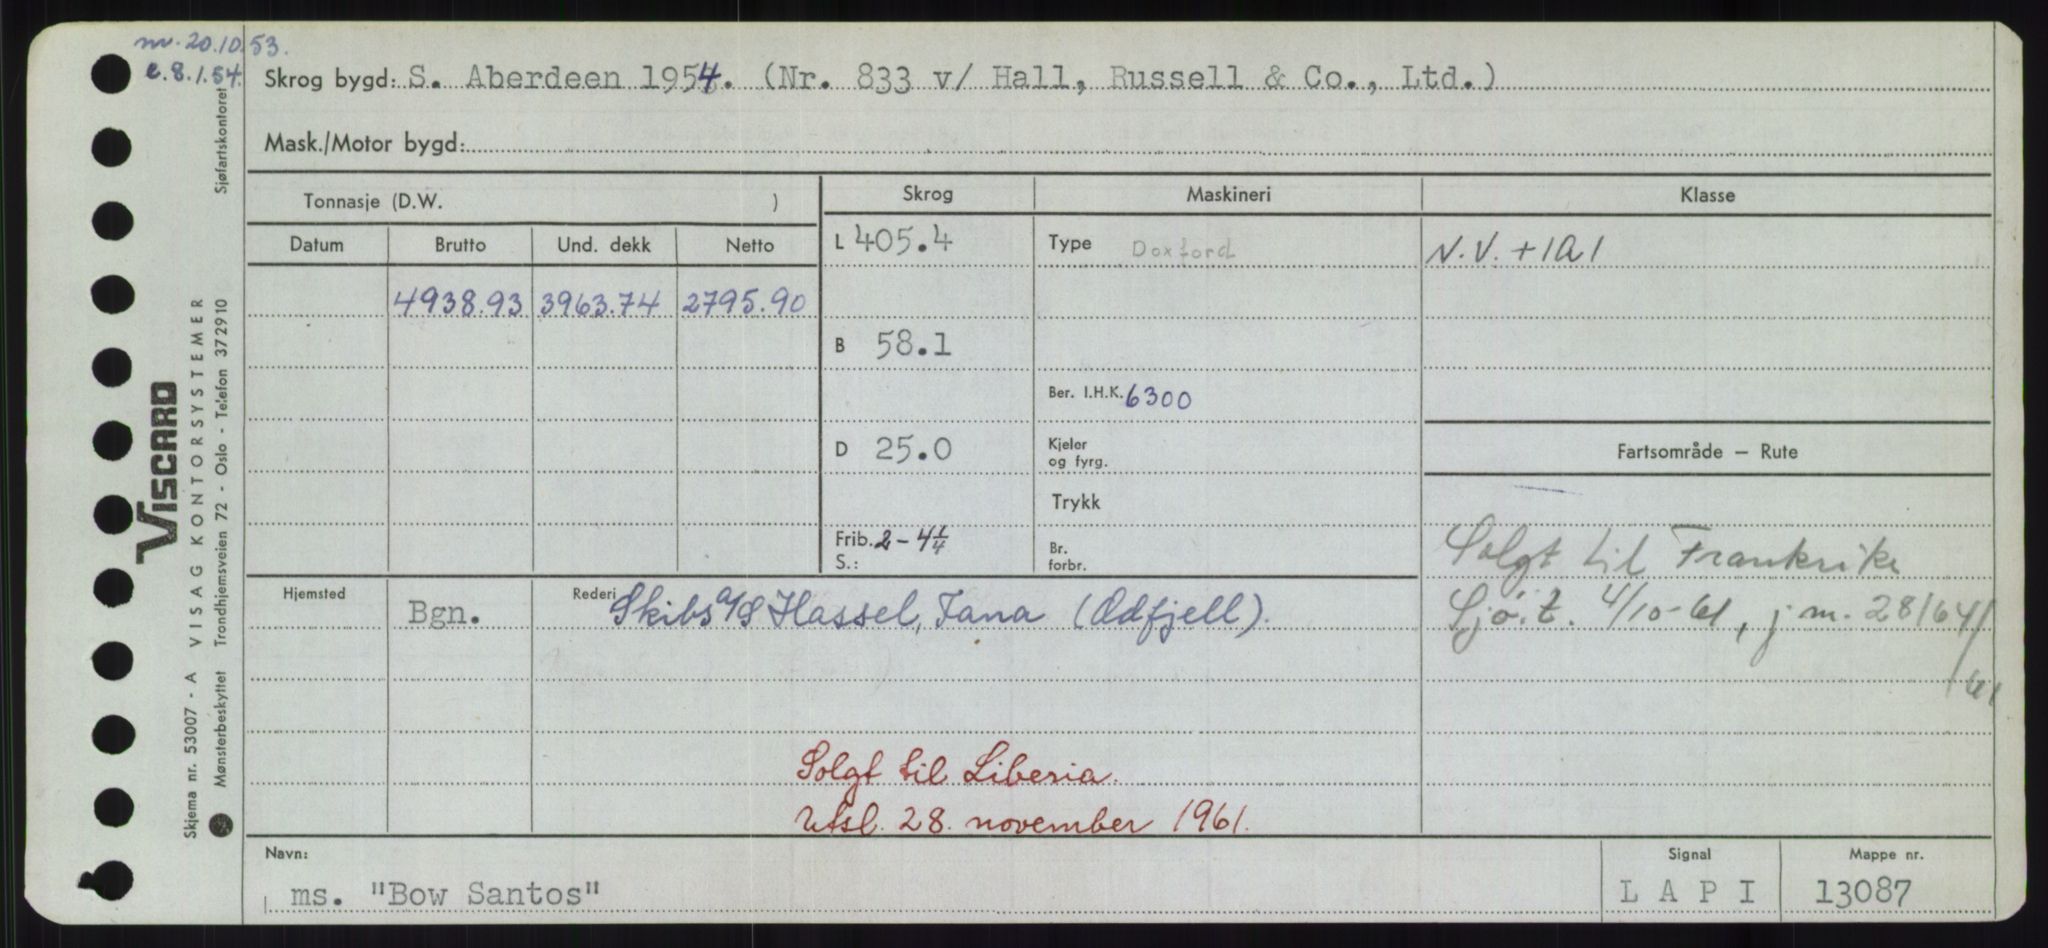 nv. 20.10.53.
e. 8.1.54.
Skrog bygd: S. Aberdeen 1954. (Nr. 833 v/ Hall, Russell & Co., Ltd.)
Mask./Motor bygd:
Tonnasje (D.W. )
Skrog
Maskineri
Klasse
Datum
Brutto
Und. dekk
Netto
L 405.4
Type Doxford
N.V. +1A1
4938.93
3963.74
2795.90
B 58.1
Ber. I.H.K. 6300
D 25.0
Kjeler
og fyrg.
Fartsområde – Rute
Trykk
Frib. 2 - 4 1/4
S.:
Br.
forbr.
Solgt til Frankrike
Sjö.t. 4/10-61, j m. 28164/
/61
Hjemsted
Bgn.
Rederi Skibs a/s Hassel, Jana (Odfjell).
Solgt til Liberia.
Utsl. 28. november 1961.
Navn:
ms. "Bow Santos"
Signal
L A P I
Mappe nr.
13087
VISCARD
Skjema nr. 53007 - A VISAG KONTORSYSTEMER
Mønsterbeskyttet Trondhjemsveien 72 - Oslo - Telefon 372910
Sjøfartskontoret